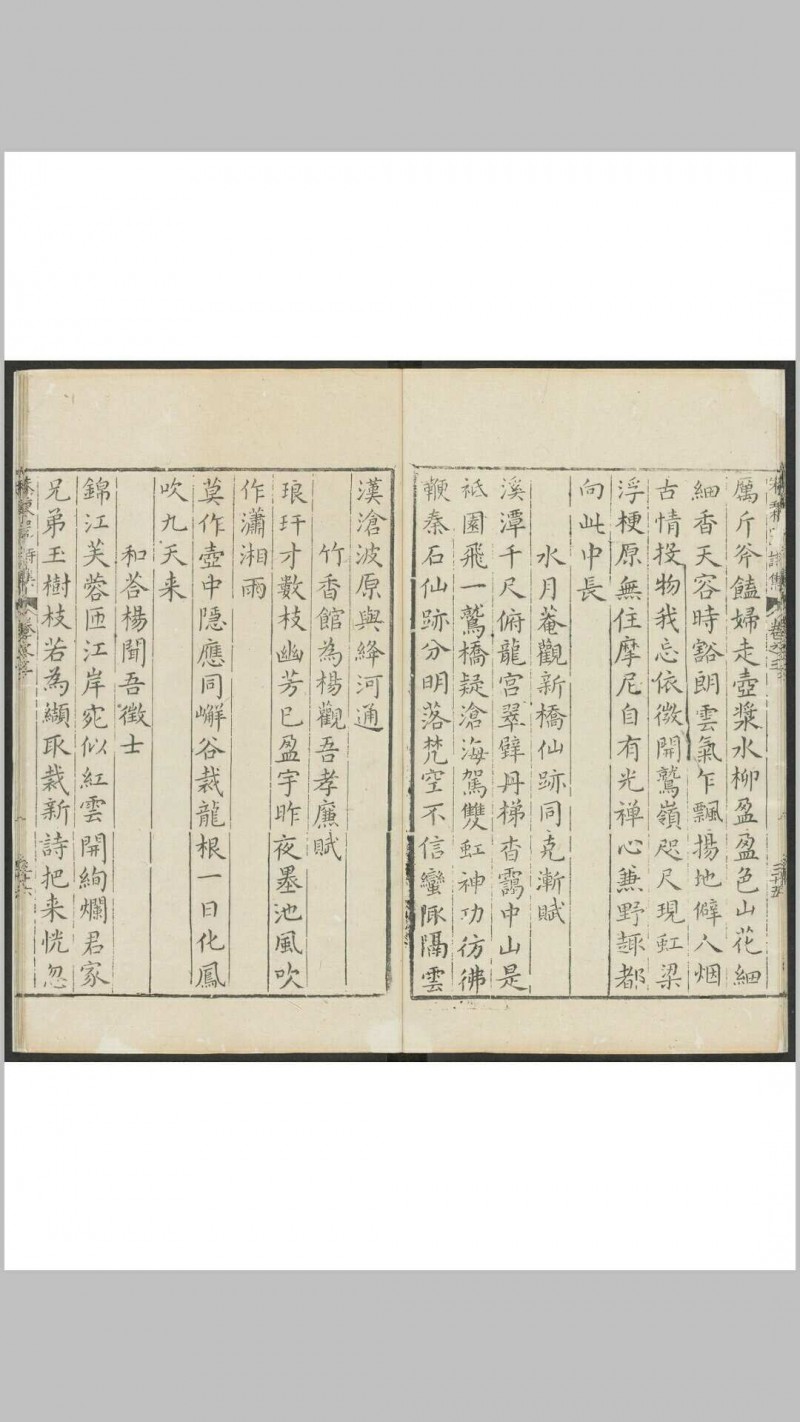 厲斤斧饁婦走壺漿水柳盈盈色山花細
細香天容時豁朗雲氣乍飄揚地僻人烟
古情投物我忘依微開鷲嶺咫尺現虹梁
浮梗原無住摩尼自有光禅心兼野趣都
向此中長
水月菴觀新橋仙跡同克漸賦
溪潭千尺俯龍宮翠壁丹梯杳靄中山是
祗園飛一鷲橋疑滄海駕雙虹神功彷彿
鞭秦石仙跡分明落梵空不信蠻陬隔雲
漢滄波原與絳河通
竹香館為楊觀吾孝廉賦
琅玕才數枝幽芳已盈宇昨夜墨池風吹
作瀟湘雨
莫作壺中隱應同嶰谷裁龍根一日化鳳
吹九天来
和荅楊聞吾徵士
錦江芙蓉匝江岸宛似紅雲開絢爛君家
兄弟玉樹枝若為纈取裁新詩把来恍忽